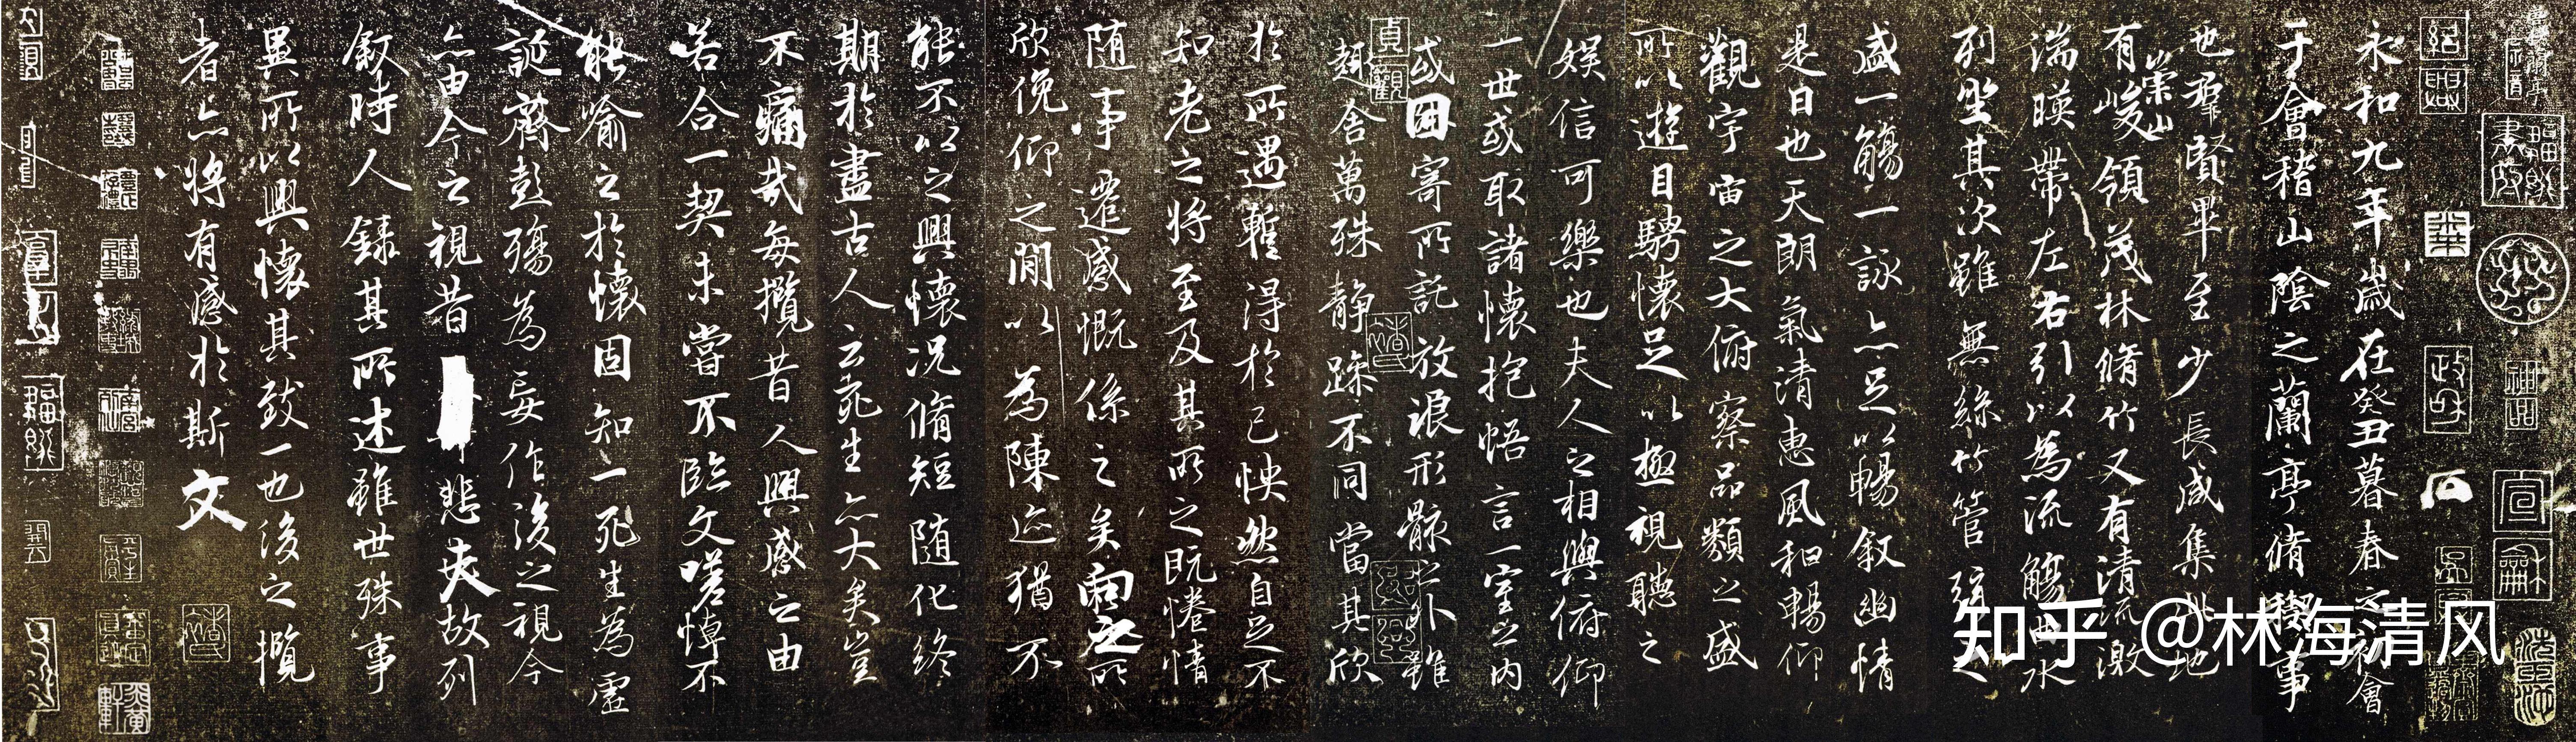 永和九年歲在癸丑暮春之初會
于會稽山陰之蘭亭脩稧事
也羣賢畢至少長咸集此地
有崇山峻領茂林脩竹又有清流激
湍暎帶左右引以為流觴曲水
列坐其次雖無絲竹管弦之
盛一觴一詠亦足以暢敘幽情
是日也天朗氣清惠風和暢仰
觀宇宙之大俯察品類之盛
所以遊目騁懷足以極視聽之
娛信可樂也夫人之相與俯仰
一世或取諸懷抱悟言一室之內
或因寄所託放浪形骸之外雖
趣舍萬殊靜躁不同當其欣
於所遇暫得於己怏然自足不
知老之將至及其所之既惓情
隨事遷感慨係之矣向之所
欣俛仰之閒以為陳迹猶不
能不以之興懷況脩短隨化終
期於盡古人云死生亦大矣豈
不痛哉每攬昔人興感之由
若合一契未嘗不臨文嗟悼不
能喻之於懷固知一死生為虛
誕齊彭殤為妄作後之視今
亦由今之視昔悲夫故列
敘時人錄其所述雖世殊事
異所以興懷其致一也後之攬
者亦將有感於斯文
貞觀
紹興
政和
宣龢
知乎 @林海清风